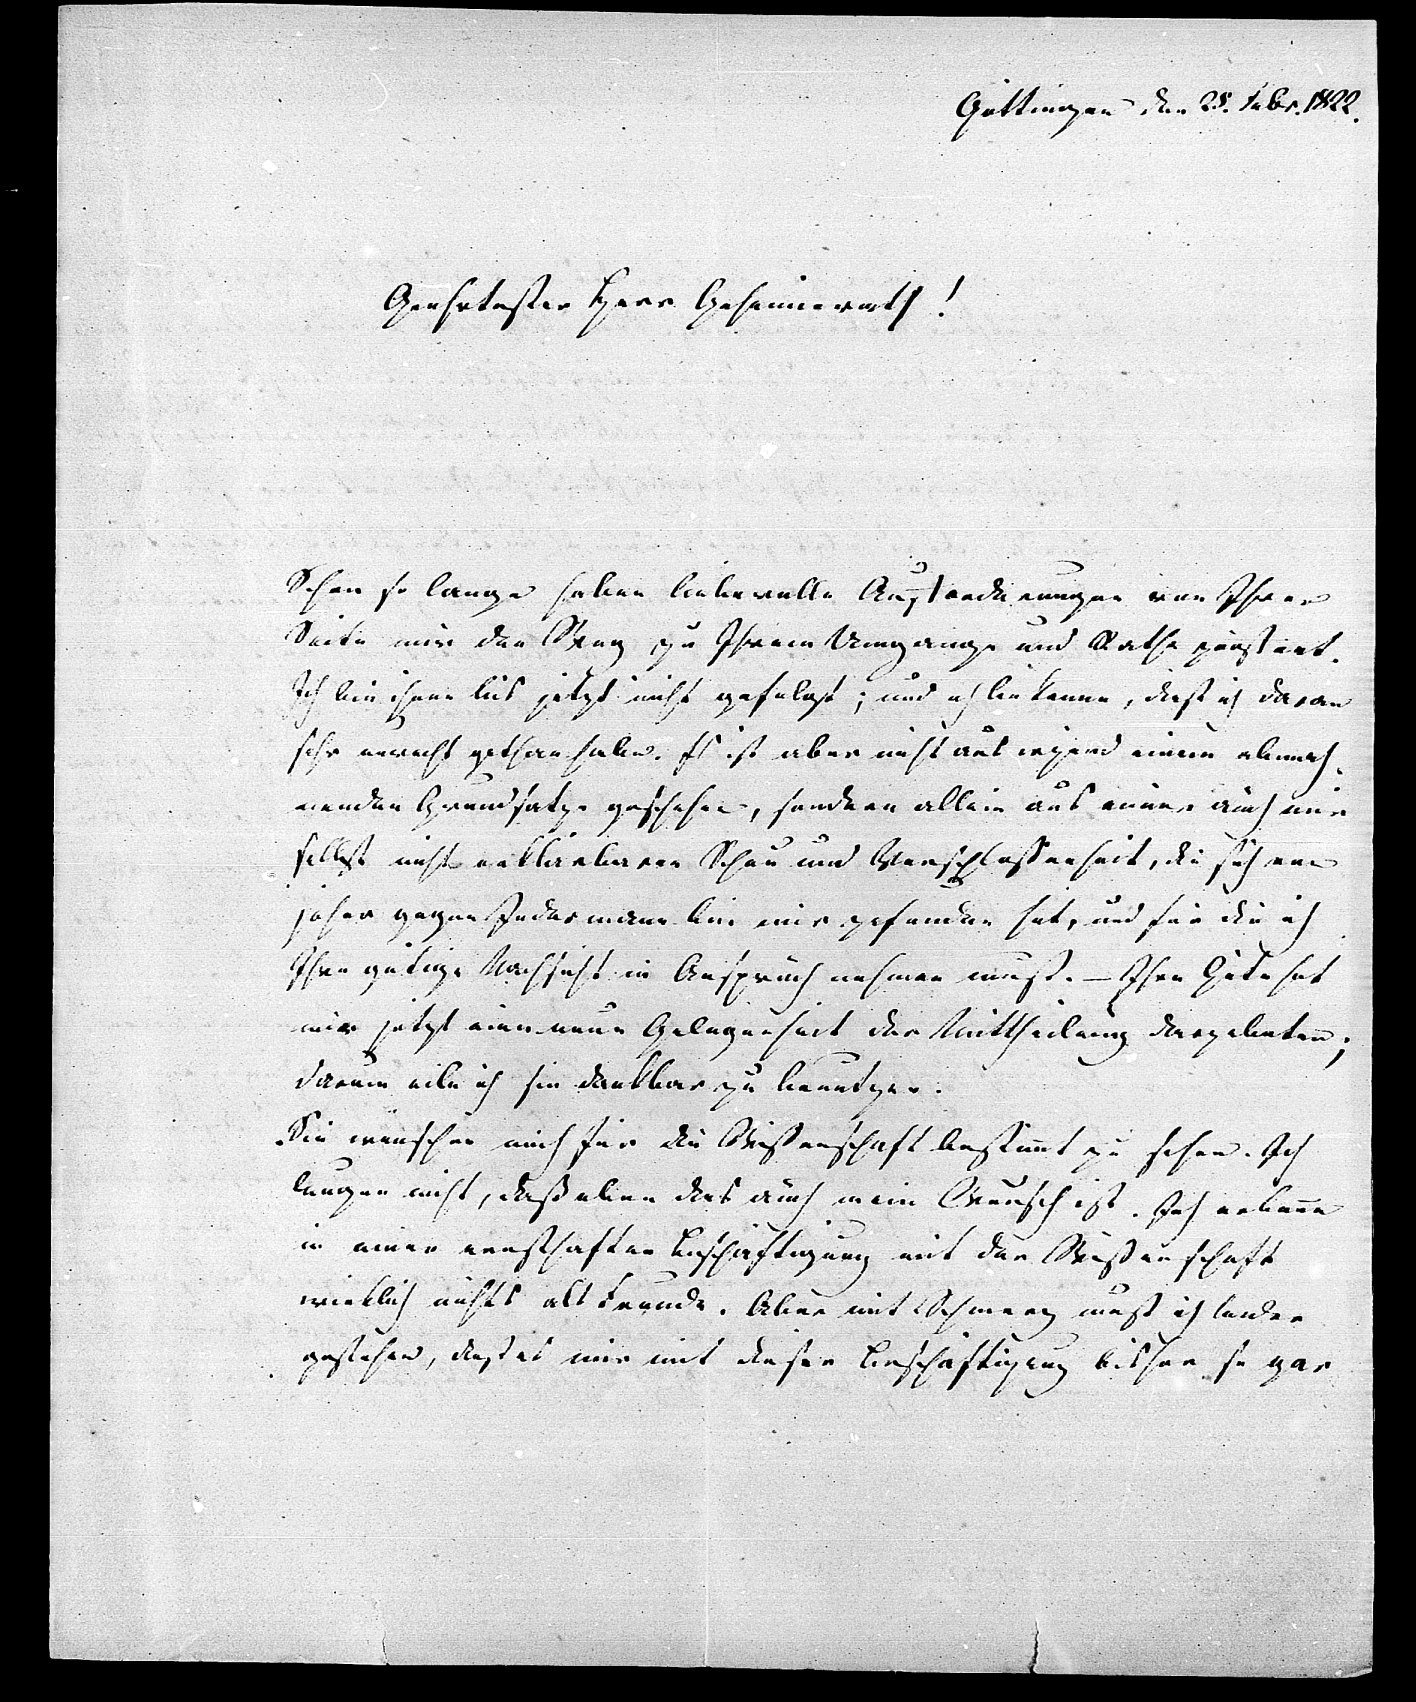 Göttingen den 28. Febr. 1822.
Geehrtester Herr Geheimerath!
Schon so lange haben liebevolle Aufforderungen von Ihrer
Seite mir den Weg zu Ihrem Umgange und Rathe
Ich bin ihnen bis jetzt nicht gefolgt; und ich bekenne, daß ich daran
sehr unrecht gethan habe. Es ist aber nicht aus irgend einem
Grundsatze geschehen, sondern allein aus einer auch mir
selbst nicht erklärbaren Scheu und Verschlossenheit, die sich von
jeher gegen Jedermann bei mir gefunden hat, und für die ich
Ihre gütige Nachsicht in Anspruch nehmen muß. – Ihre Güte hat
mir jetzt eine neue Gelegenheit der Mittheilung dargeboten;
darum eile ich sie dankbar zu benutzen.
Sie wünschen mich für die Wissenschaft bestimmt zu sehen. Ich
leugne nicht, daß eben dies auch mein Wunsch ist. Ich
in einer ernsthaften Beschäftigung mit der Wissenschaft
wirklich nichts als Freude. Aber mit Schmerz muß ich leider
gestehen, daß es mir mit dieser Beschäftigung bisher so gar